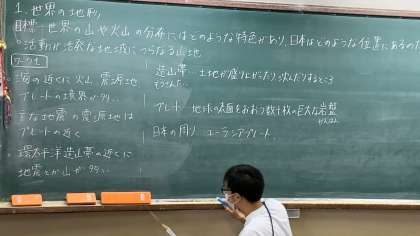 1. 世界の地形
目標 世界の山や火山の分布にはどのような特色があり、日本はどのような位置にあるのだ
○活動が活発な地域につらなる山地
ワーク1
海の近くに火山 震源地
プレートの境界が多い
主な地震の震源地は
プレートの近く
・環太平洋造山帯の近くに
地震とか山が多い
造山帯 土地が盛り上がったり、沈んだりするところ
ぞうざんたい
プレート 地球の表面をおおう数十枚の巨大な岩盤
がんばん
日本の周り ユーラシアプレート